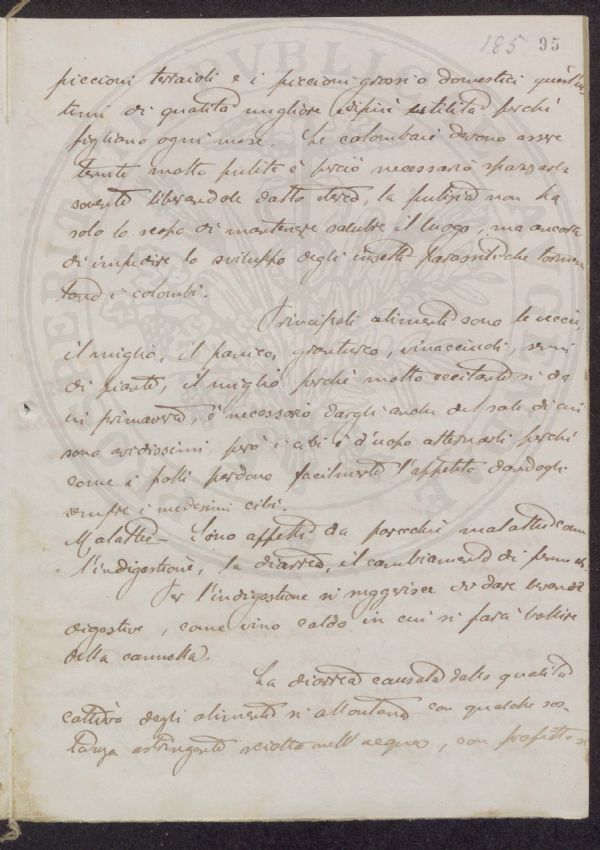 185 95
piccioni terraioli e i piccioni grossi o domestici quest'ul
timi di qualità migliore e di più utilità perché
figliano ogni mese. Le colombaie devono essere
tenute molto pulite è perciò necessario spazzarle
sovente liberandole dallo sterco, la pulizia non ha
solo lo scopo di mantenere salubre il luogo, ma ancora
di impedire lo sviluppo degli insetti parassiti che tormen
tano i colombi.
Principali alimenti sono le veccie,
il miglio, il panico, granturco, vinacciuoli, semi
di piante, il miglio perché molto eccitante si da
in primavera, è necessario dargli anche del sale di cui
sono avidissimi però i cibi è d'uopo alternarli perché
come i polli perdono facilmente l'appetito dandogli
sempre i medesimi cibi.
Malattie - Sono affetti da parecchie malattie come
l'indigestione, la diarrea, il cambiamento di penne
Per l'indigestione si suggerisce di dare bevande
digestive, come vino caldo in cui si farà bollire
della cannella.
La diarrea causata dalla qualità
cattiva degli alimenti si allontana con qualche sos-
tanza astringente sciolta nell'acqua, con profitto si